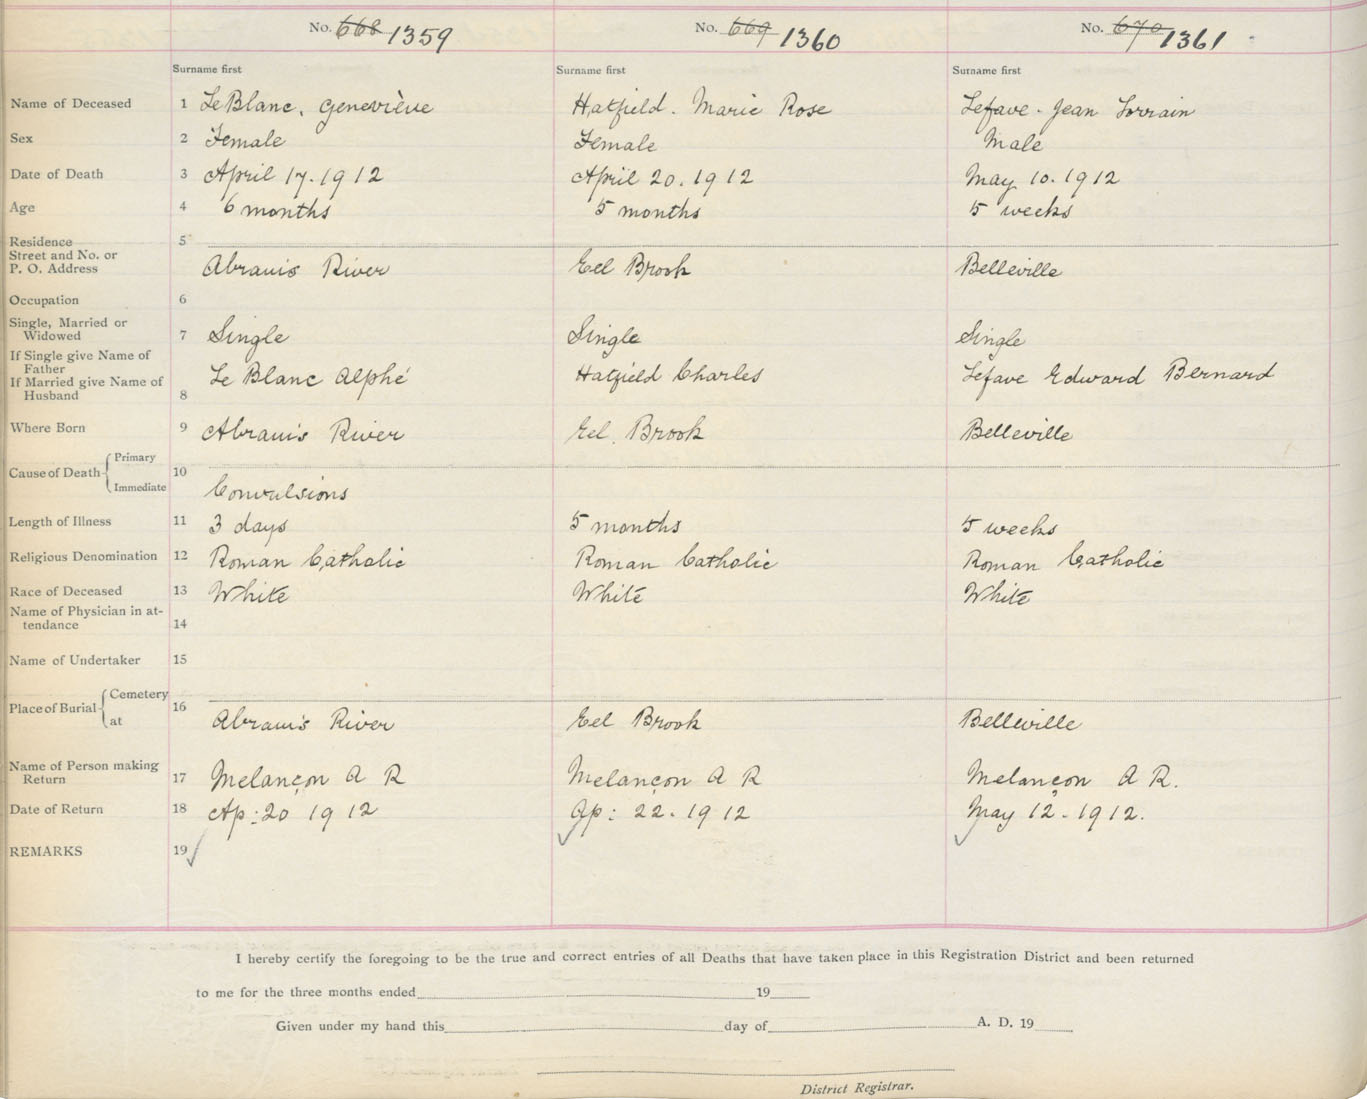 No. 668 1359 No. 669 1360 No. 670 1361
Surname first Surname first Surname first
Name of Deceased 1 LeBlanc, Geneviève Hatfield. Marie Rose Lefave. Jean Lorrain
Sex 2 Female Female Male
Date of Death 3 April 17. 1912 April 20. 1912 May 10. 1912
Age 4 6 months 5 months 5 weeks
Residence 5
Street and No. or
P. O. Address Abram's River Eel Brook Belleville
Occupation 6
Single, Married or
Widowed 7 Single Single Single
If Single give Name of
Father
If Married give Name of Le Blanc Alphé Hatfield Charles Lefave Edward Bernard
Husband 8
Where Born 9 Abram's River Eel Brook Belleville
Cause of Death Primary 10
Immediate Convulsions
Length of Illness 11 3 days 5 months 5 weeks
Religious Denomination 12 Roman Catholic Roman Catholic Roman Catholic
Race of Deceased 13 White White White
Name of Physician in at-
tendance 14
Name of Undertaker 15
Place of Burial Cemetery 16
at Abram's River Eel Brook Belleville
Name of Person making
Return 17 Melançon A R Melançon A R Melançon A R.
Date of Return 18 Ap: 20 1912 Ap: 22. 1912 May 12. 1912.
REMARKS 19
I hereby certify the foregoing to be the true and correct entries of all Deaths that have taken place in this Registration District and been returned
to me for the three months ended 19
Given under my hand this day of A. D. 19
District Registrar.